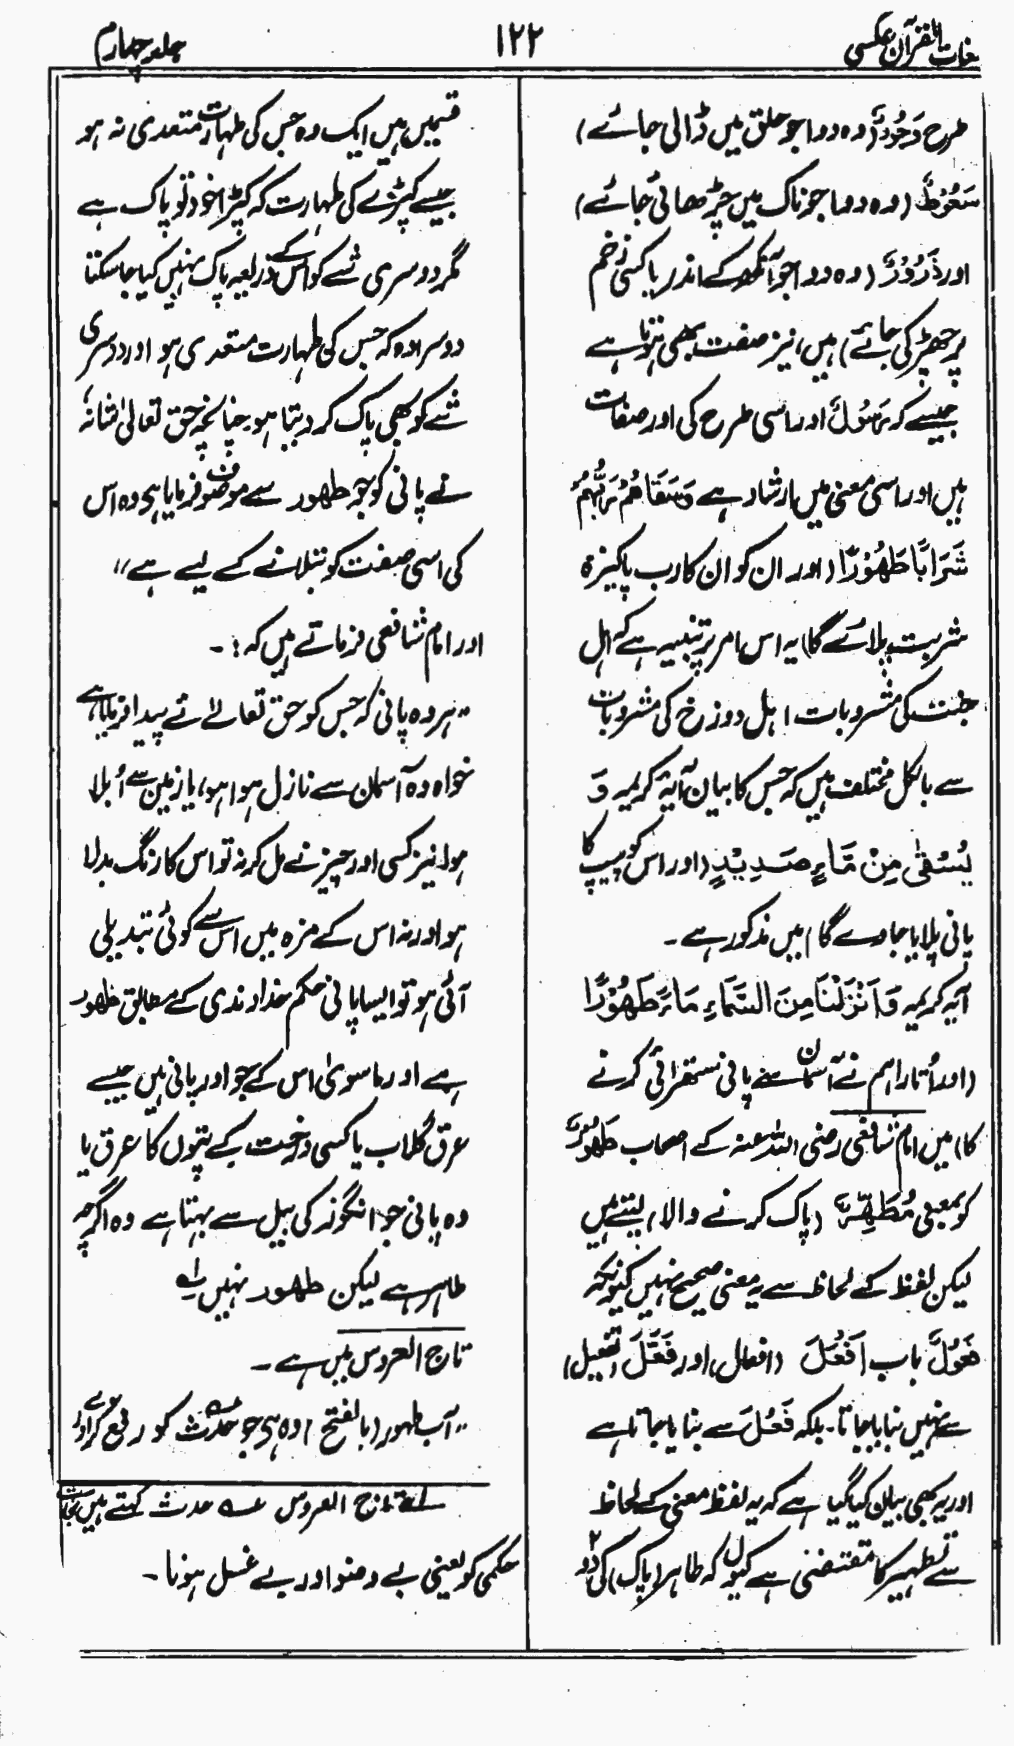 لغات القرآن عکسی
۱۲۲
جلد چہارم
طرح وَجُوْرٌ (وہ دوا جو حلق میں ڈالی جائے)
سَعُوْطٌ (وہ دوا جو ناک میں چڑھائی جائے)
اور ذَرُوْرٌ (وہ دوا جو آنکھ کے اندر یا کسی زخم
پر چھڑکی جائے) ہیں، نیز صفت بھی ہوتا ہے
جیسے کہ رَسُوْلٌ اور اسی طرح کی اور صفات
ہیں اور اسی معنی میں ارشاد ہے وَسَقَاهُمْ رَبُّهُمْ
شَرَابًا طَهُوْرًا (اور ان کو ان کا رب پاکیزہ
شربت پلائے گا) یہ اس امر پر تنبیہ ہے کہ اہل
جنت کی مشروبات، اہل دوزخ کی مشروبات
سے بالکل مختلف ہیں کہ جس کا بیان آیۂ کریمہ وَ
يُسْقٰى مِنْ مَّاءٍ صَدِيْدٍ (اور اس کو پیپ کا
پانی پلایا جاوے گا) میں مذکور ہے۔
آیہ کریمہ وَاَنْزَلْنَا مِنَ السَّمَاءِ مَاءً طَهُوْرًا
(اور اُتارا ہم نے آسمان سے پانی ستھرائی کرنے
کا) میں امام شافعی رضی اللہ عنہ کے اصحاب طَهُوْرٌ
کو بمعنی مُطَهِّرٌ (پاک کرنے والا) لیتے ہیں
لیکن لفظ کے لحاظ سے یہ معنی صحیح نہیں کیونکہ
فَعُوْلٌ باب اَفْعَلَ (افعال) اور فَعَّلَ (تفعیل)
سے نہیں بنایا جاتا۔ بلکہ فَعُلَ سے بنایا جاتا ہے
اور یہ بھی بیان کیا گیا ہے کہ یہ لفظ معنی کے لحاظ
سے تطہیر کا مقتضی ہے کیوں کہ طاہر (پاک) کی دو
قسمیں ہیں ایک وہ جس کی طہارت متعدی نہ ہو
جیسے کپڑے کی طہارت کہ کپڑا خود تو پاک ہے
مگر دوسری شے کو اس کے ذریعہ پاک نہیں کیا جا سکتا
دوسرا وہ کہ جس کی طہارت متعدی ہو اور دوسری
شے کو بھی پاک کر دیتا ہو چنانچہ حق تعالیٰ شانہٗ
نے پانی کو جو طهور سے موصوف فرمایا ہے وہ اس
کی اسی صفت کو بتلانے کے لیے ہے"
اور امام شافعی فرماتے ہیں کہ:۔
"ہر وہ پانی کہ جس کو حق تعالےٰ نے پیدا فرمایا ہے
خواہ وہ آسمان سے نازل ہوا ہو، یا زمین سے اُبلا
ہو، نیز کسی اور چیز نے مل کر نہ تو اس کا رنگ بدلا
ہو اور نہ اس کے مزہ میں اس سے کوئی تبدیلی
آئی ہو تو ایسا پانی حکم خداوندی کے مطابق طهور
ہے اور ماسویٰ اس کے جو اور پانی ہیں جیسے
عرق گلاب یا کسی درخت کے پتوں کا عرق یا
وہ پانی جو انگور کی بیل سے بہتا ہے وہ اگرچہ
طاہر ہے لیکن طهور نہیں لہ
تاج العروس میں ہے۔
"آب طہور (بالفتح) وہ ہے جو حدث کو رفع کرے اور
لہ تاج العروس عہ حدث کہتے ہیں نجاست
حکمی کو یعنی بے وضو اور بے غسل ہونا۔